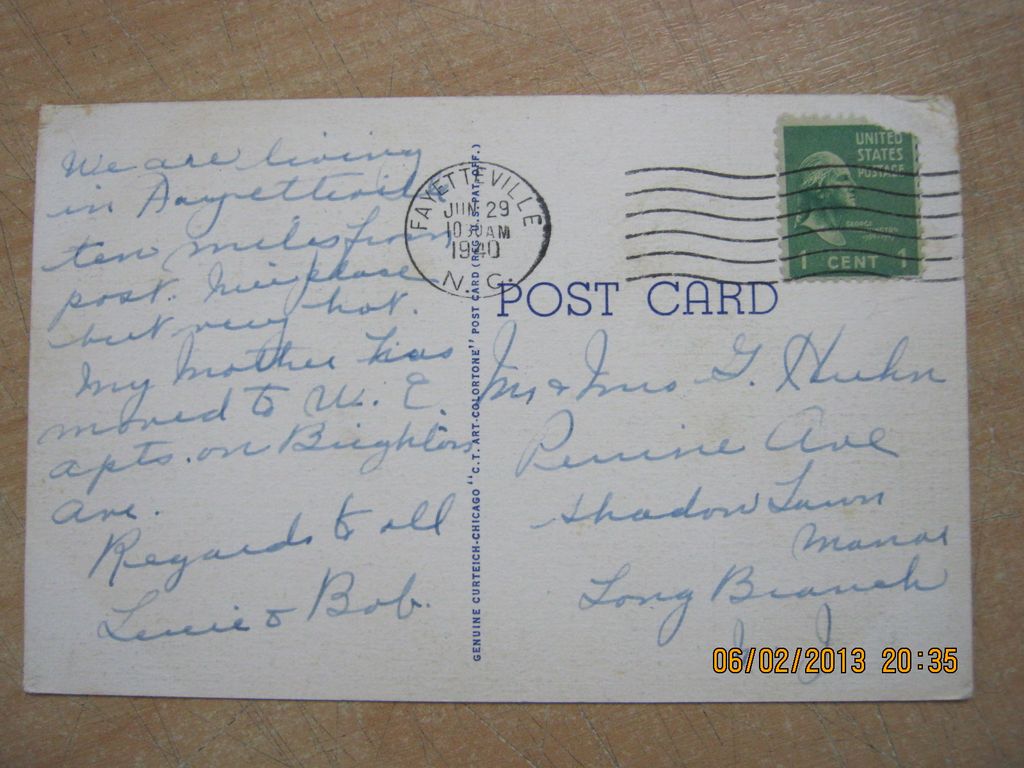 We are living
in Fayetteville
ten miles from
post. Nice place
but very hot.
My Mother has
moved to W. E.
apts. on Brighton
Ave.
Regards to all
& Bob.
GENUINE CURTEICH-CHICAGO "C.T. ART-COLORTONE" POST CARD (REG. U.S. PAT. OFF.)
FAYETTEVILLE
JUN 29
10 30 AM
1940
N. C.
UNITED
STATES
POSTAGE
GEORGE
WASHINGTON
1 CENT 1
POST CARD
Mr & Mrs G. Huhn
Perrine Ave
Shadow Lawn
Manor
Long Branch
N. J.
06/02/2013 20:35